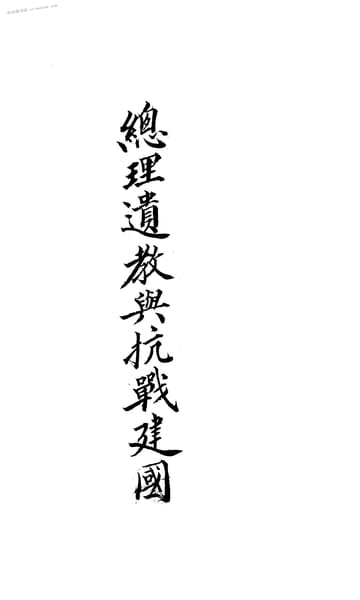 總理遺教與抗戰建國